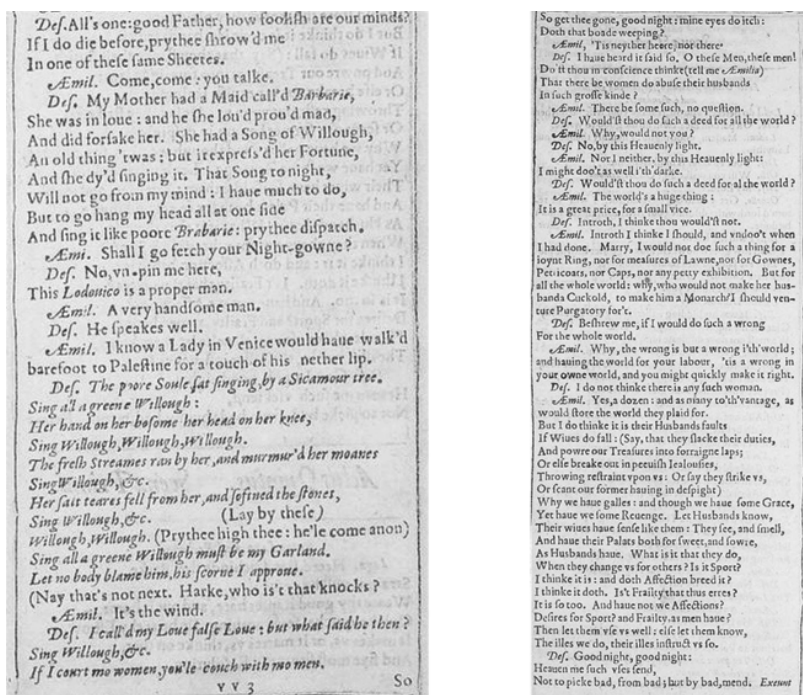 Des. All's one: good Father, how foolish are our minds?
If I do die before, prythee shrow'd me
In one of these same Sheetes.
Æmil. Come, come: you talke.
Des. My Mother had a Maid call'd Barbarie,
She was in loue: and he she lou'd prou'd mad,
And did forsake her. She had a Song of Willough,
An old thing 'twas: but it express'd her Fortune,
And she dy'd singing it. That Song to night,
Will not go from my mind: I haue much to do,
But to go hang my head all at one side
And sing it like poore Brabarie: prythee dispatch.
Æmi. Shall I go fetch your Night-gowne?
Des. No, vn-pin me here,
This Lodouico is a proper man.
Æmil. A very handsome man.
Des. He speakes well.
Æmil. I know a Lady in Venice would haue walk'd
barefoot to Palestine for a touch of his nether lip.
Des. The poore Soule sat singing, by a Sicamour tree.
Sing all a greene Willough:
Her hand on her bosome her head on her knee,
Sing Willough, Willough, Willough.
The fresh Streames ran by her, and murmur'd her moanes
Sing Willough, &c.
Her salt teares fell from her, and softned the stones,
Sing Willough, &c. (Lay by these)
Willough, Willough. (Prythee high thee: he'le come anon)
Sing all a greene Willough must be my Garland.
Let no body blame him, his scorne I approue.
(Nay that's not next. Harke, who is't that knocks?
Æmil. It's the wind.
Des. I call'd my Loue false Loue: but what said he then?
Sing Willough, &c.
If I court mo women, you'le couch with mo men.
vv3 So
So get thee gone, good night: mine eyes do itch:
Doth that boade weeping?
Æmil. 'Tis neyther heere, nor there
Des. I haue heard it said so. O these Men, these men!
Do'st thou in conscience thinke (tell me Æmilia)
That there be women do abuse their husbands
In such grosse kinde?
Æmil. There be some such, no question.
Des. Would'st thou do such a deed for all the world?
Æmil. Why, would not you?
Des. No, by this Heauenly light.
Æmil. Nor I neither, by this Heauenly light:
I might doo't as well i'th'darke.
Des. Would'st thou do such a deed for al the world?
Æmil. The world's a huge thing:
It is a great price, for a small vice.
Des. Introth, I thinke thou would'st not.
Æmil. Introth I thinke I should, and vndoo't when
I had done. Marry, I would not doe such a thing for a
ioynt Ring, nor for measures of Lawne, nor for Gownes,
Petticoats, nor Caps, nor any petty exhibition. But for
all the whole world: why, who would not make her hus-
bands Cuckold, to make him a Monarch? I should ven-
ture Purgatory for't.
Des. Beshrew me, if I would do such a wrong
For the whole world.
Æmil. Why, the wrong is but a wrong i'th'world;
and hauing the world for your labour, 'tis a wrong in
your owne world, and you might quickly make it right.
Des. I do not thinke there is any such woman.
Æmil. Yes, a dozen: and as many to'th'vantage, as
would store the world they plaid for.
But I do thinke it is their Husbands faults
If Wiues do fall: (Say, that they slacke their duties,
And powre our Treasures into forraigne laps;
Or else breake out in peeuish Iealousies,
Throwing restraint vpon vs: Or say they strike vs,
Or scant our former hauing in despight)
Why we haue galles: and though we haue some Grace,
Yet haue we some Reuenge. Let Husbands know,
Their wiues haue sense like them: They see, and smell,
And haue their Palats both for sweet, and sowre,
As Husbands haue. What is it that they do,
When they change vs for others? Is it Sport?
I thinke it is: and doth Affection breed it?
I thinke it doth. Is't Frailty that thus erres?
It is so too. And haue not we Affections?
Desires for Sport? and Frailty, as men haue?
Then let them vse vs well: else let them know,
The illes we do, their illes instruct vs so.
Des. Good night, good night:
Heauen me such vses send,
Not to picke bad, from bad; but by bad, mend. Exeunt